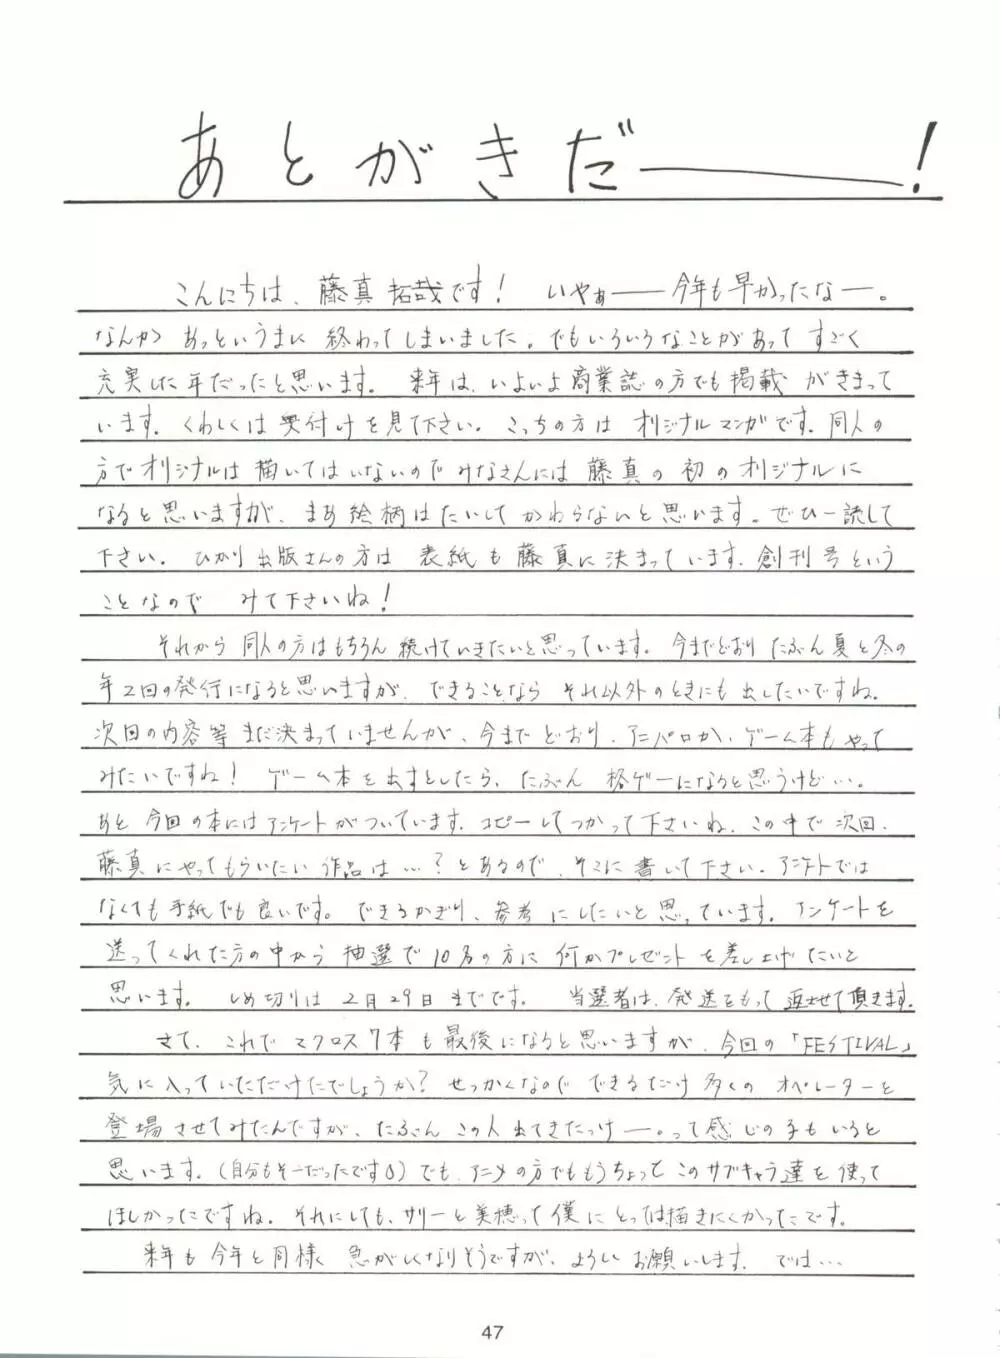 あとがきだー!
こんにちは、藤真拓哉です! いやぁー今年も早かったなー。
なんか あっというまに 終わってしまいました。でもいろいろなことがあって すごく
充実した年だったと思います。 来年は、いよいよ商業誌の方でも掲載 がきまって
います。くわしくは奥付けを見て下さい。こっちの方は オリジナルマンガです。同人の
方でオリジナルは描いてはいないのでみなさんには 藤真の 初のオリジナルに
なると思いますが、まあ絵柄はたいして かわらないと思います。ぜひ一読して
下さい。ひかり出版さんの方は 表紙も藤真に決まっています、創刊号という
ことなので みて下さいね!
それから 同人の方はもちろん 続けていきたいと思っています。今までどおり たぶん夏と冬の
年2回の発行になると思いますが、できることなら それ以外のときにも出したいですね。
次回の内容等 まだ決まっていませんが、今まで どおり、アニパロか、ゲーム本も やって
みたいですね! ゲーム本を出すとしたら、たぶん 格ゲーになると思うけど…。
あと 今回の本にはアンケートがついています、コピーしてつかって下さいね、この中で次回、
藤真にやってもらいたい 作品は…?とあるので、そこに 書いて下さい。アンケートでは
なくても手紙でも良いです。できるかぎり、参考 にしたいと思っています。アンケートを
送ってくれた方の中から 抽選で10名の方に 何かプレゼント を差し上げ たいと
思います。 しめ切りは 2月29日までです。 当選者は、発送をもって 返させて頂きます。
さて、これで マクロス7本も最後になると思いますが、今回の「FESTIVAL」
気に入っていただけたでしょうか? せっかくなので できるだけ 多くの オペレーターを
登場させてみたんですが、たぶん この人出てきたっけー。って感じの子もいると
思います。(自分もそーだったです)でも、アニメの方でももうちょっと このサブキャラ達を使って
ほしかったですね。それにしても、サリーと美穂って僕にとっては描きにくかったです。
来年も 今年と同様 急がしくなりそうですが、よろしくお願いします。 では…
47